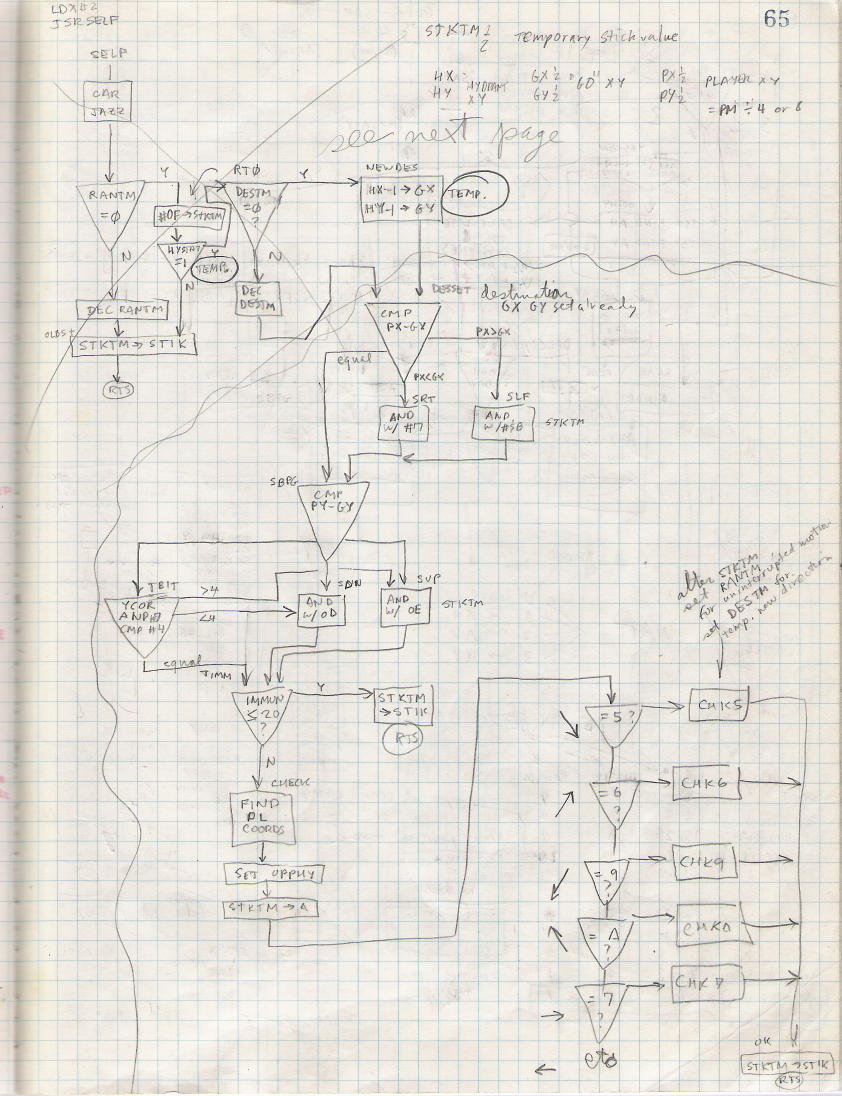 LDX#2
JSRSELF
65
STKTM 1/2 Temporary stick value
SELF
CAR
JAZZ
HX
HY
HYDRANT
XY
GX 1/2
GY 1/2
"GD" XY
PX 1/2
PY 1/2
PLAYER XY
= PM ÷ 4 or 8
see next page
RANTM
=0
Y
N
#0F→STKTM
HYSTAT
=1
Y
N
TEMP.
RT0
DESTM
=0
?
Y
N
DEC
DESTM
NEWDES
HX-1→GX
HY-1→GY
TEMP.
DEC RANTM
OLDST
STKTM→STIK
RTS
DESSET
destination
GX GY set already
CMP
PX-GX
equal
PX>GX
PX<GX
SRT
AND
W/ #7
SLF
AND
W/#$B
STKTM
SBPG
CMP
PY-GY
TBIT
YCOR
AND#7
CMP #4
>4
<4
SDN
AND
W/0D
SUP
AND
W/ 0E
STKTM
equal
JIMM
IMMUN
≤20
?
Y
STKTM
→STIK
RTS
N
CHECK
FIND
PL
COORDS
SET OPPHY
STKTM→A
after STKTM
set RANTM
for uninterrupted motion
set DESTM for
temp. new direction
= 5 ?
CHK5
= 6
?
CHK6
= 9
?
CHK9
= A
?
CHKA
= 7
?
CHK7
etc
OK
STKTM→STIK
RTS